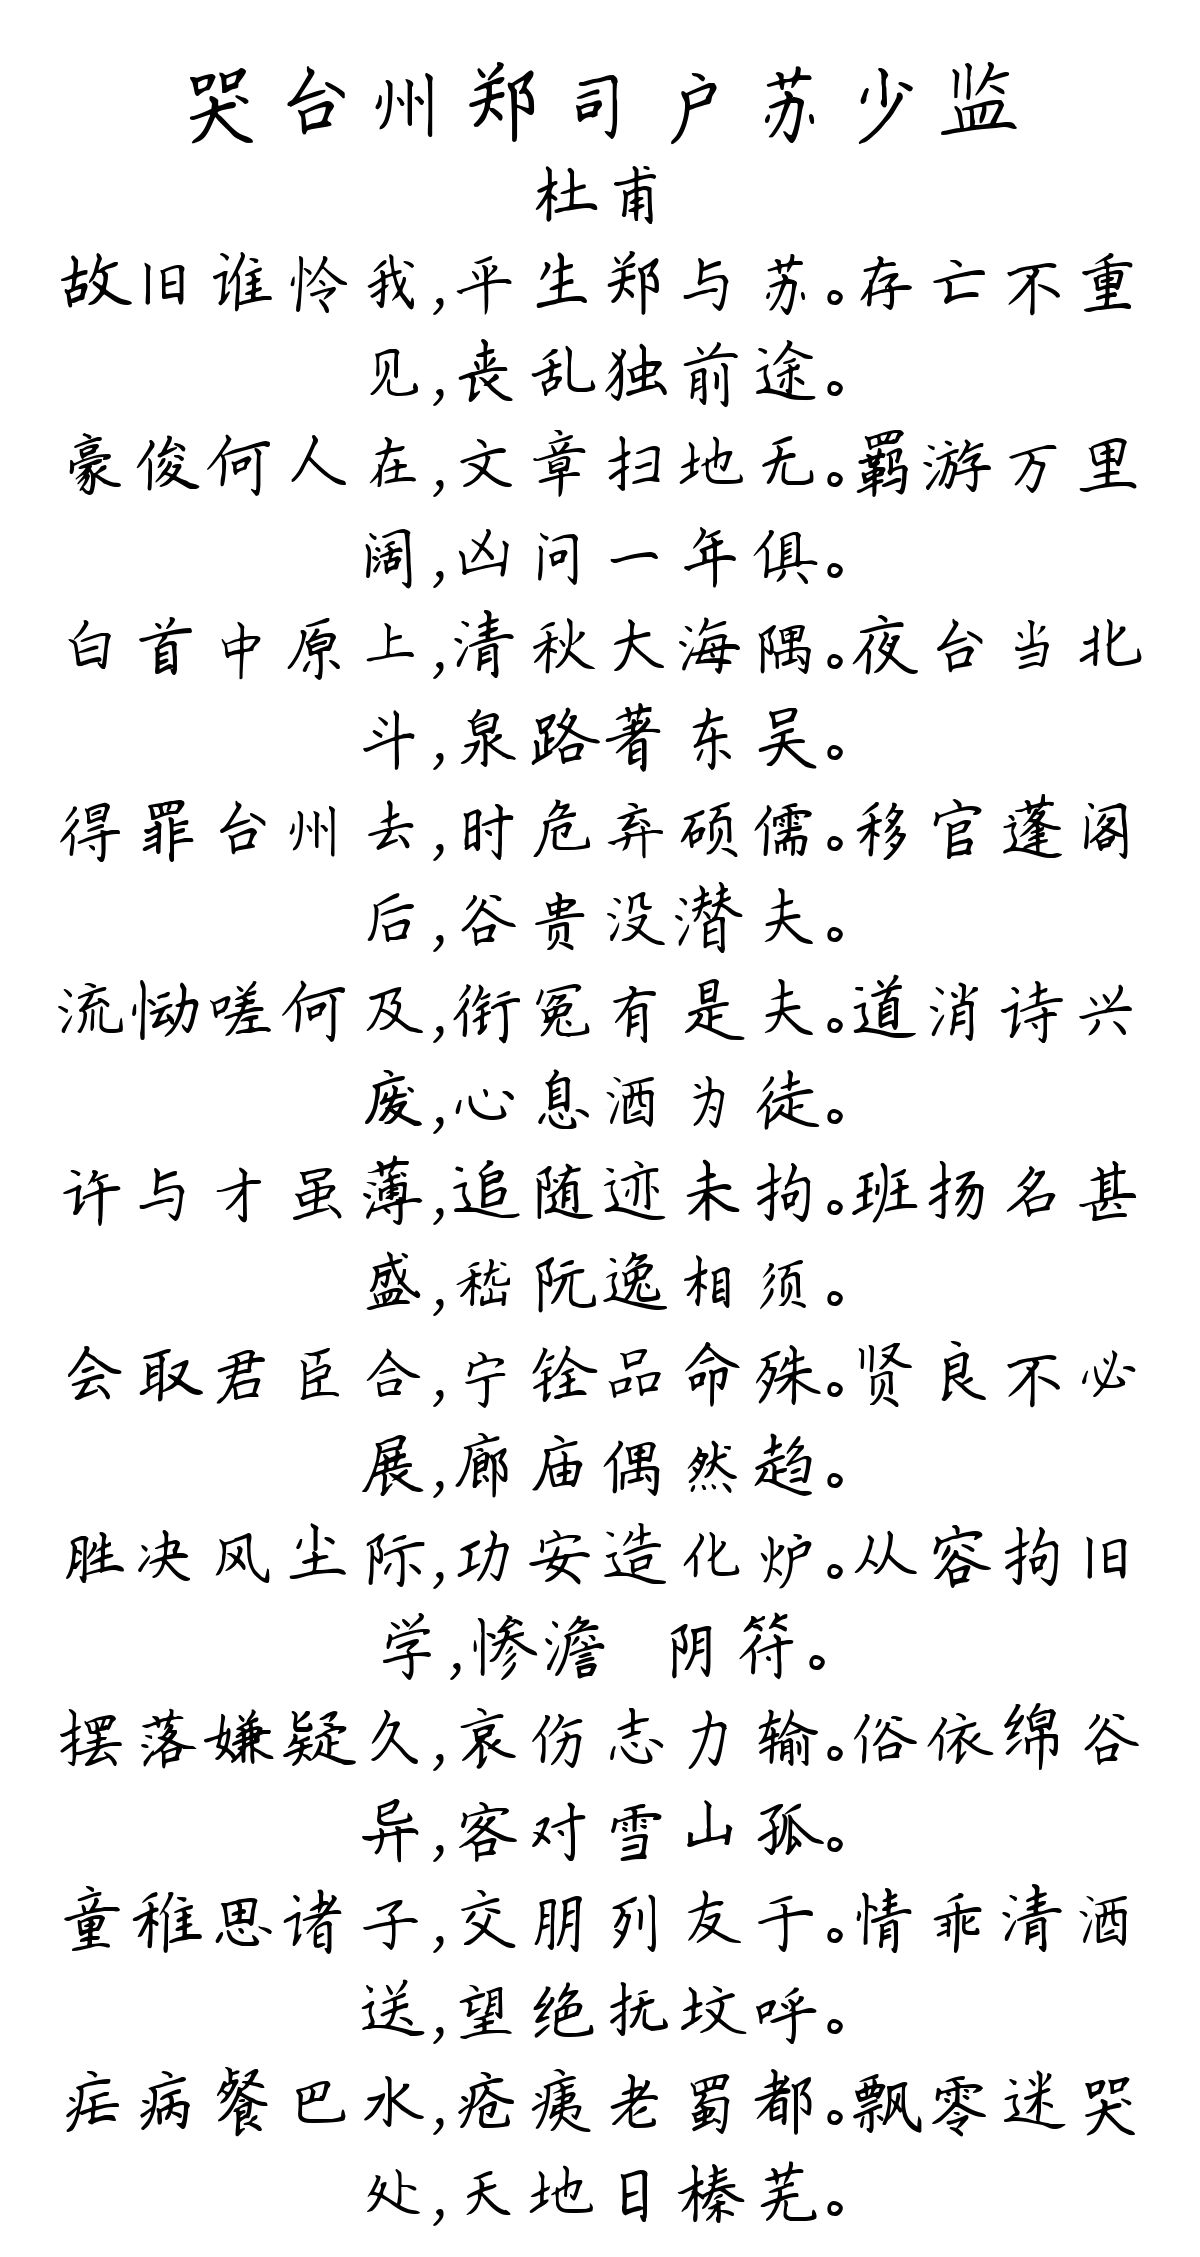 哭台州郑司户苏少监
杜甫
故旧谁怜我,平生郑与苏。存亡不重
见,丧乱独前途。
豪俊何人在,文章扫地无。羁游万里
阔,凶问一年俱。
白首中原上,清秋大海隅。夜台当北
斗,泉路著东吴。
得罪台州去,时危弃硕儒。移官蓬阁
后,谷贵没潜夫。
流恸嗟何及,衔冤有是夫。道消诗兴
废,心息酒为徒。
许与才虽薄,追随迹未拘。班扬名甚
盛,嵇阮逸相须。
会取君臣合,宁铨品命殊。贤良不必
展,廊庙偶然趋。
胜决风尘际,功安造化炉。从容拘旧
学,惨澹 阴符。
摆落嫌疑久,哀伤志力输。俗依绵谷
异,客对雪山孤。
童稚思诸子,交朋列友于。情乖清酒
送,望绝抚坟呼。
疟病餐巴水,疮痍老蜀都。飘零迷哭
处,天地日榛芜。